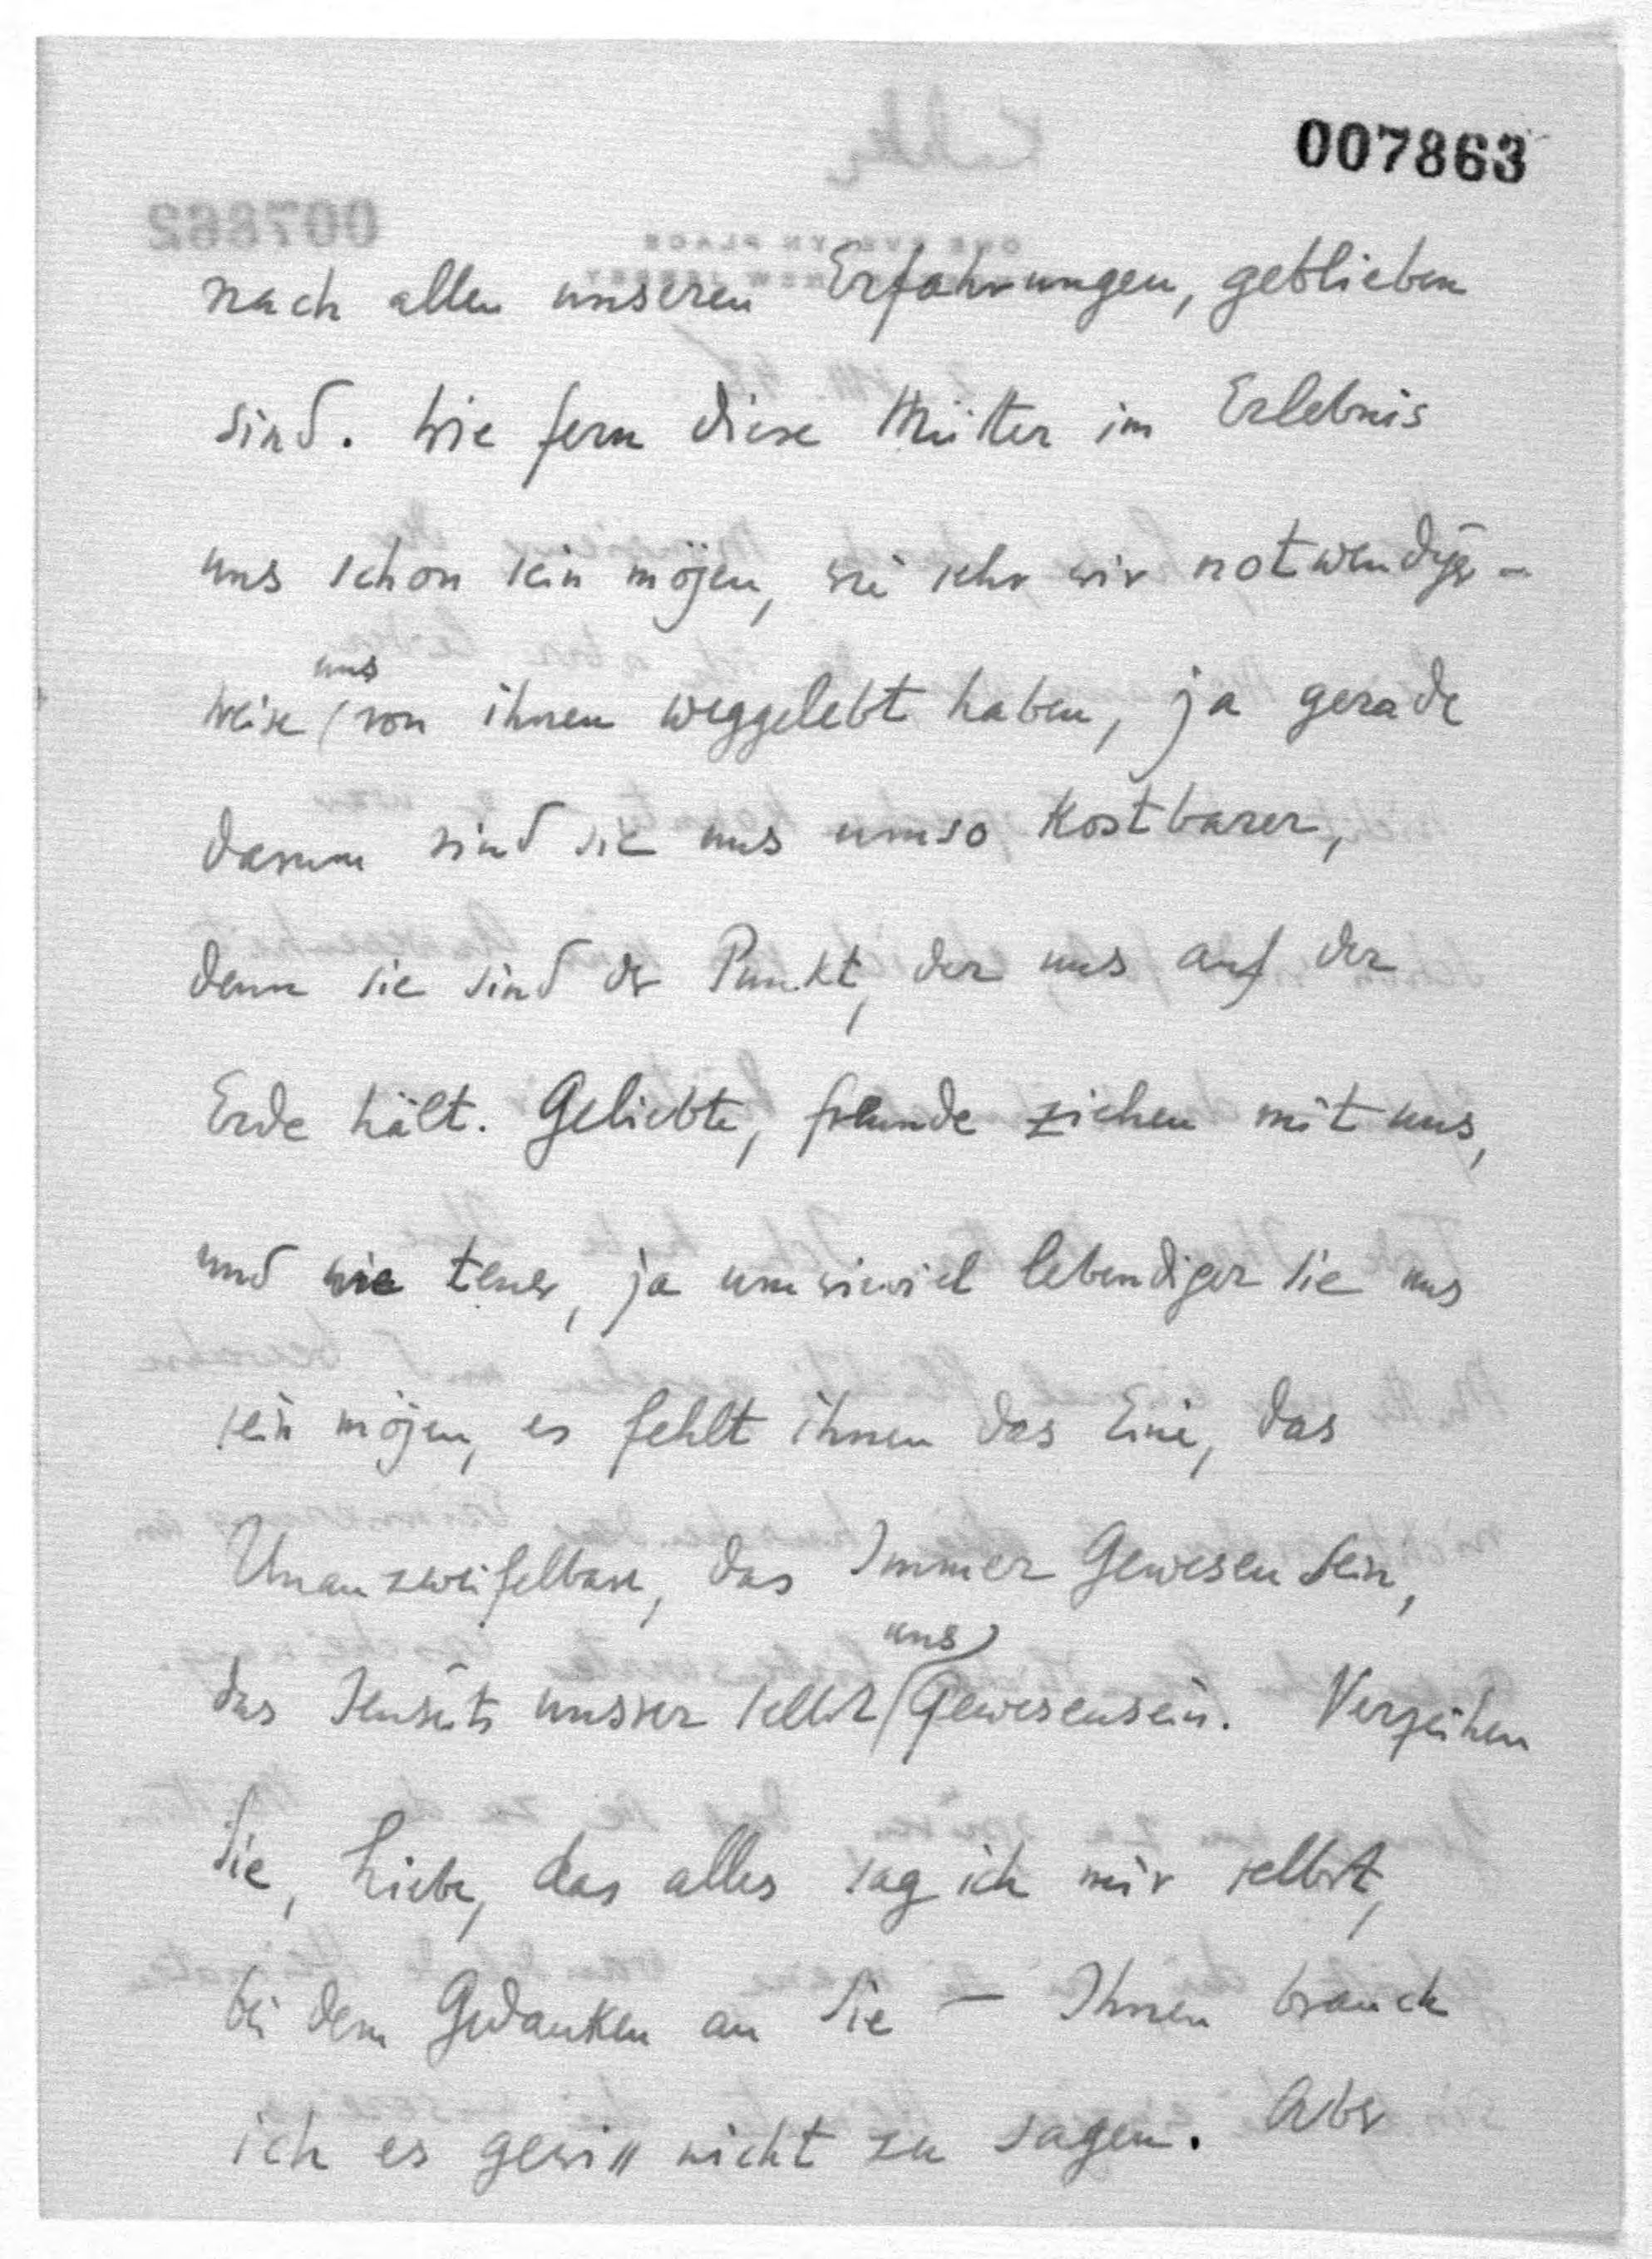 007863
nach allen unseren Erfahrungen, geblieben
sind. Wie fern diese Mütter im Erlebnis
uns schon sein mögen, wie sehr wir notwendiger-
weise uns von ihnen weggelebt haben, ja gerade
darum sind sie uns umso kostbarer,
denn sie sind der Punkt, der uns auf der
Erde hält. Geliebte, freunde ziehen mit uns,
und wie teuer, ja um wieviel lebendiger sie uns
sein mögen, es fehlt ihnen das Eine, das
Unanzweifelbare, das Immer Gewesen Sein,
das Jenseits unsrer selbst uns Gewesensein. Verzeihen
Sie, Liebe, das alles sag ich mir selbst,
bei dem Gedanken an Sie – Ihnen brauch
ich es gewiss nicht zu sagen. Aber